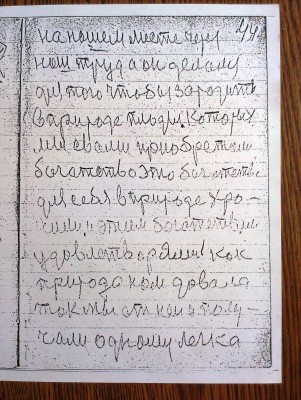 44
на нашем месте через
наш труд а он делаем
для того чтобы зародить
в природе плоды. Которых
мы сваями приобретали
богатство Это богатство
для себя в природе Уро-
чили и этим богатством
удовлетворяли как
природа нам довала
так мы от неи и полу-
чали одному легка